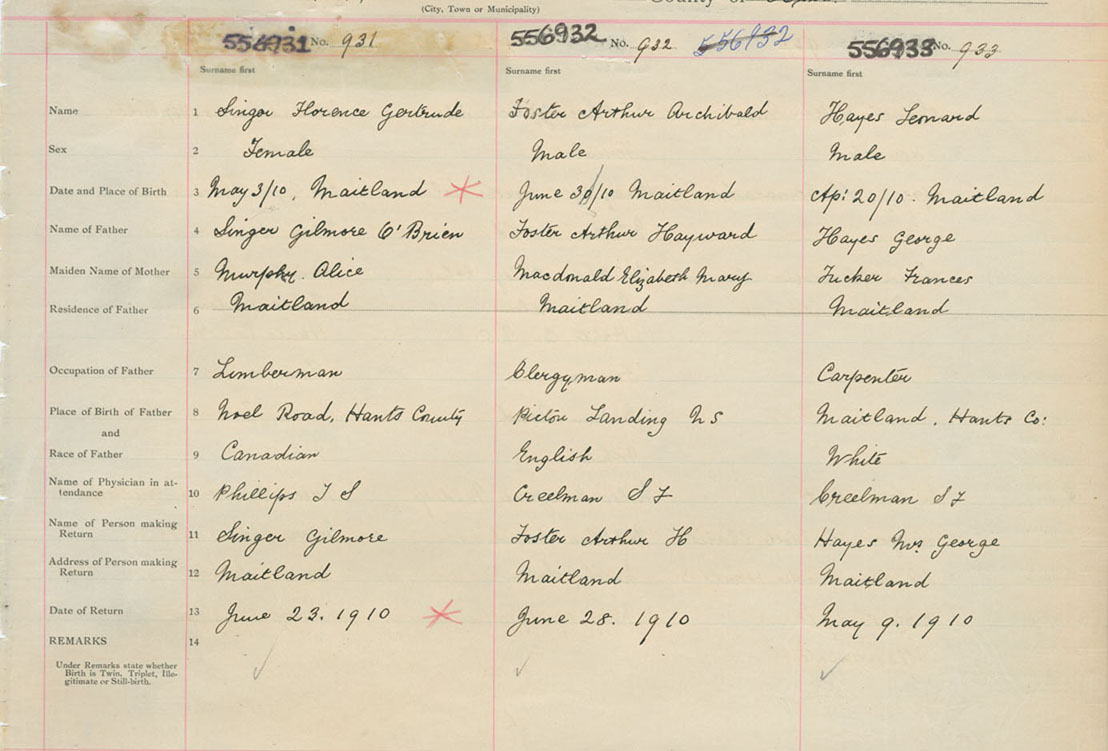 (City, Town or Municipality)
County of
556931 No. 931 556932 No. 932 556932 556933 No. 933
Surname first Surname first Surname first
Name 1 Singer Florence Gertrude Foster Arthur Archibald Hayes Leonard
Sex 2 Female Male Male
Date and Place of Birth 3 May 3/10, Maitland June 30/10 Maitland Ap: 20/10. Maitland
Name of Father 4 Singer Gilmore O'Brien Foster Arthur Hayward Hayes George
Maiden Name of Mother 5 Murphy. Alice Macdonald Elizabeth Mary Tucker Frances
Residence of Father 6 Maitland Maitland Maitland
Occupation of Father 7 Lumberman Clergyman Carpenter
Place of Birth of Father 8 Noel Road, Hants County Pictou Landing NS Maitland, Hants Co:
and
Race of Father 9 Canadian English White
Name of Physician in at-
tendance 10 Phillips T S Creelman S F Creelman S F
Name of Person making
Return 11 Singer Gilmore Foster Arthur H Hayes Mrs George
Address of Person making
Return 12 Maitland Maitland Maitland
Date of Return 13 June 23. 1910 June 28. 1910 May 9. 1910
REMARKS 14
Under Remarks state whether
Birth is Twin, Triplet, Ille-
gitimate or Still-birth.